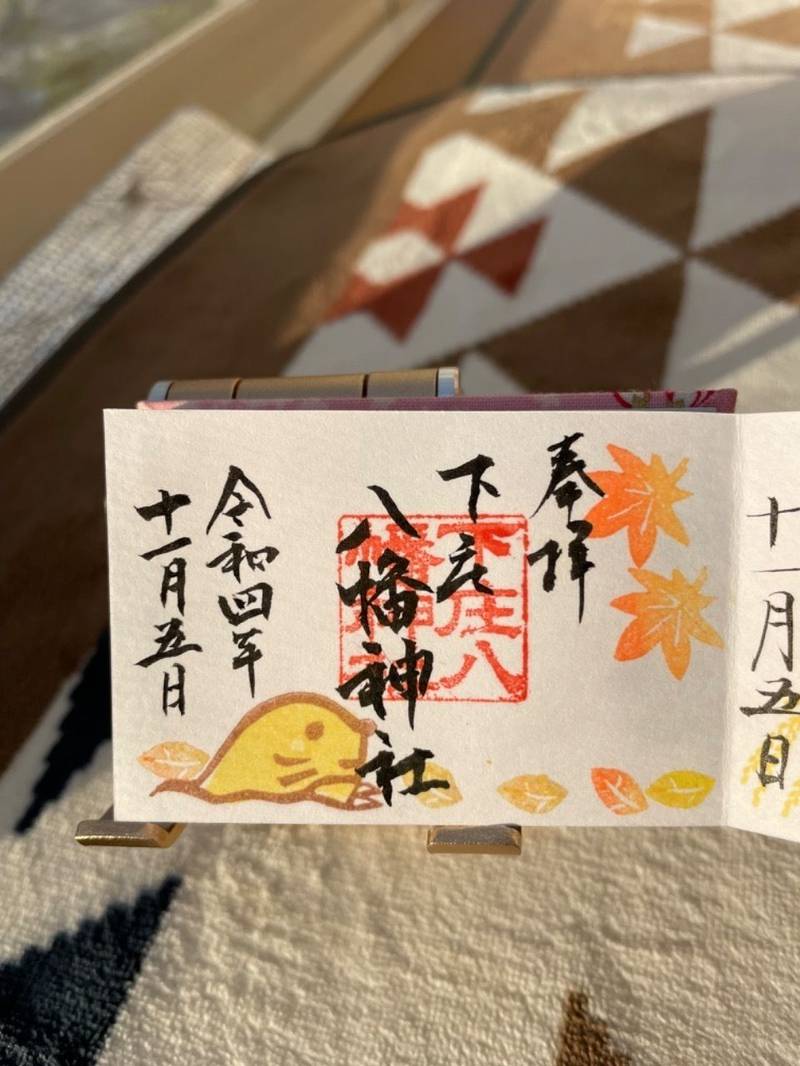 十一月五日
奉拝
下庄
八幡神社
下庄八
幡神社
令和四年
十一月五日